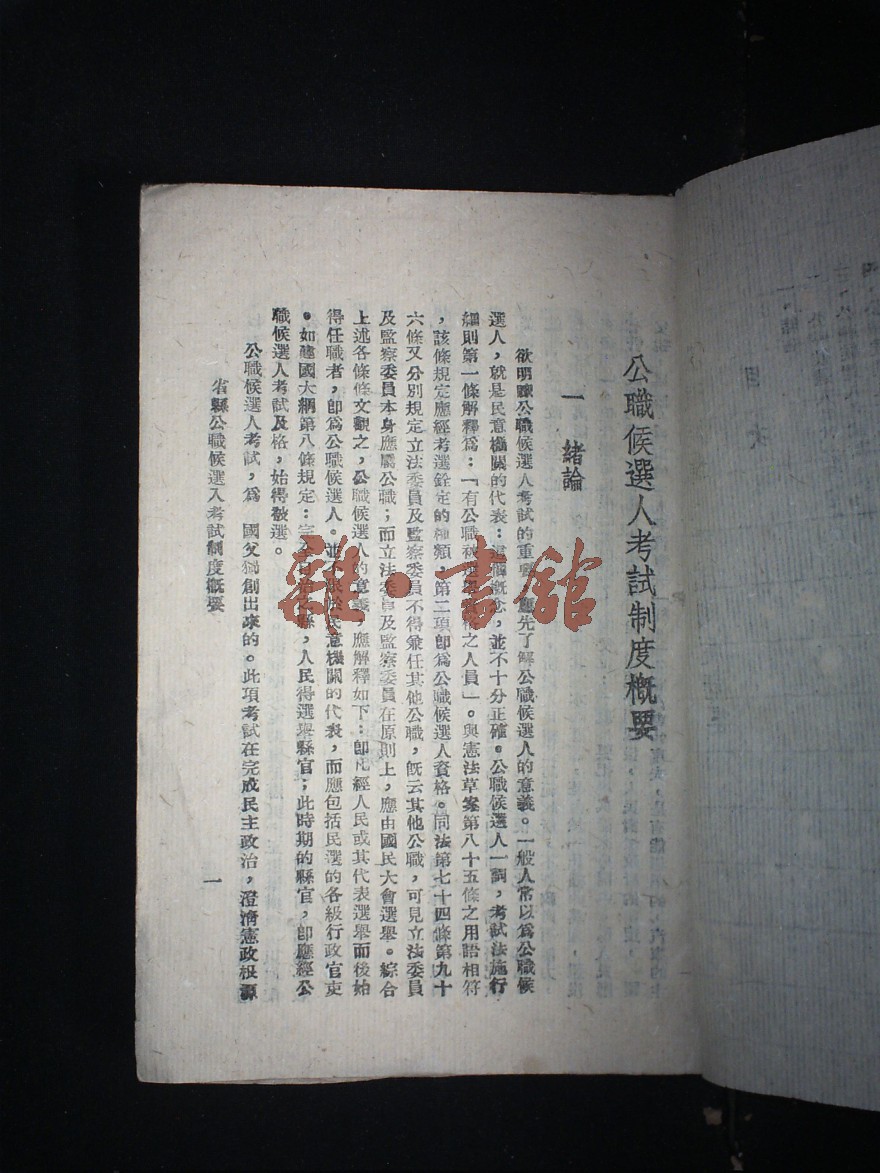 公職候選人考試制度概要
一　緒論
欲明瞭公職候選人考試的重要，應先了解公職候選人的意義。一般人常以爲公職候
選人，就是民意機關的代表：這個概念，並不十分正確。公職候選人一詞，考試法施行
細則第一條解釋爲：「有公職被選舉資格之人員」。與憲法草案第八十五條之用語相符
，該條規定應經考選銓定的種類，第二項卽爲公職候選人資格。同法第七十四條第九十
六條又分別規定立法委員及監察委員不得兼任其他公職，旣云其他公職，可見立法委員
及監察委員本身應屬公職；而立法委員及監察委員在原則上，應由國民大會選舉。綜合
上述各條條文觀之，公職候選人的意義，應解釋如下：卽凡經人民或其代表選舉而後始
得任職者，卽爲公職候選人。並不限於民意機關的代表，而應包括民選的各級行政官吏
。如建國大綱第八條規定：完全自治之縣，人民得選舉縣官；此時期的縣官，卽應經公
職候選人考試及格，始得被選。
公職候選人考試，爲　國父獨創出來的。此項考試在完成民主政治，澄清憲政根源
省縣公職候選人考試制度概要
一
雜·書館